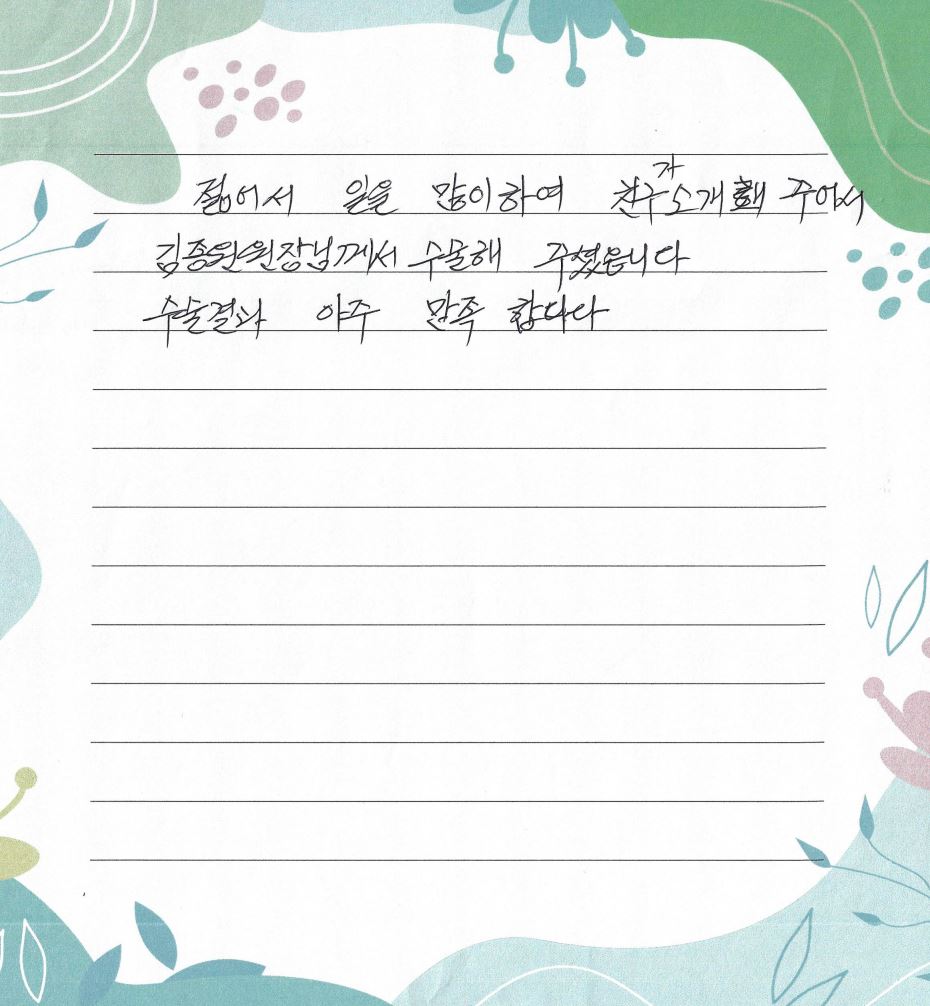 젊어서 일을 많이하여 친구가 소개해 주어서
김종원원장님께서 수술해 주셨읍니다
수술결과 아주 만족 합니다